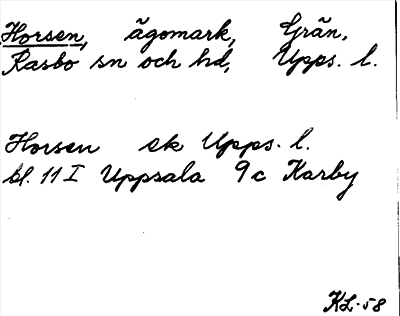 Horsen, ägomark, Grän,
Rasbo sn och hd, Upps. l.
Horsen ek Upps. l.
bl. 11 I Uppsala 9c Karby
KL-58